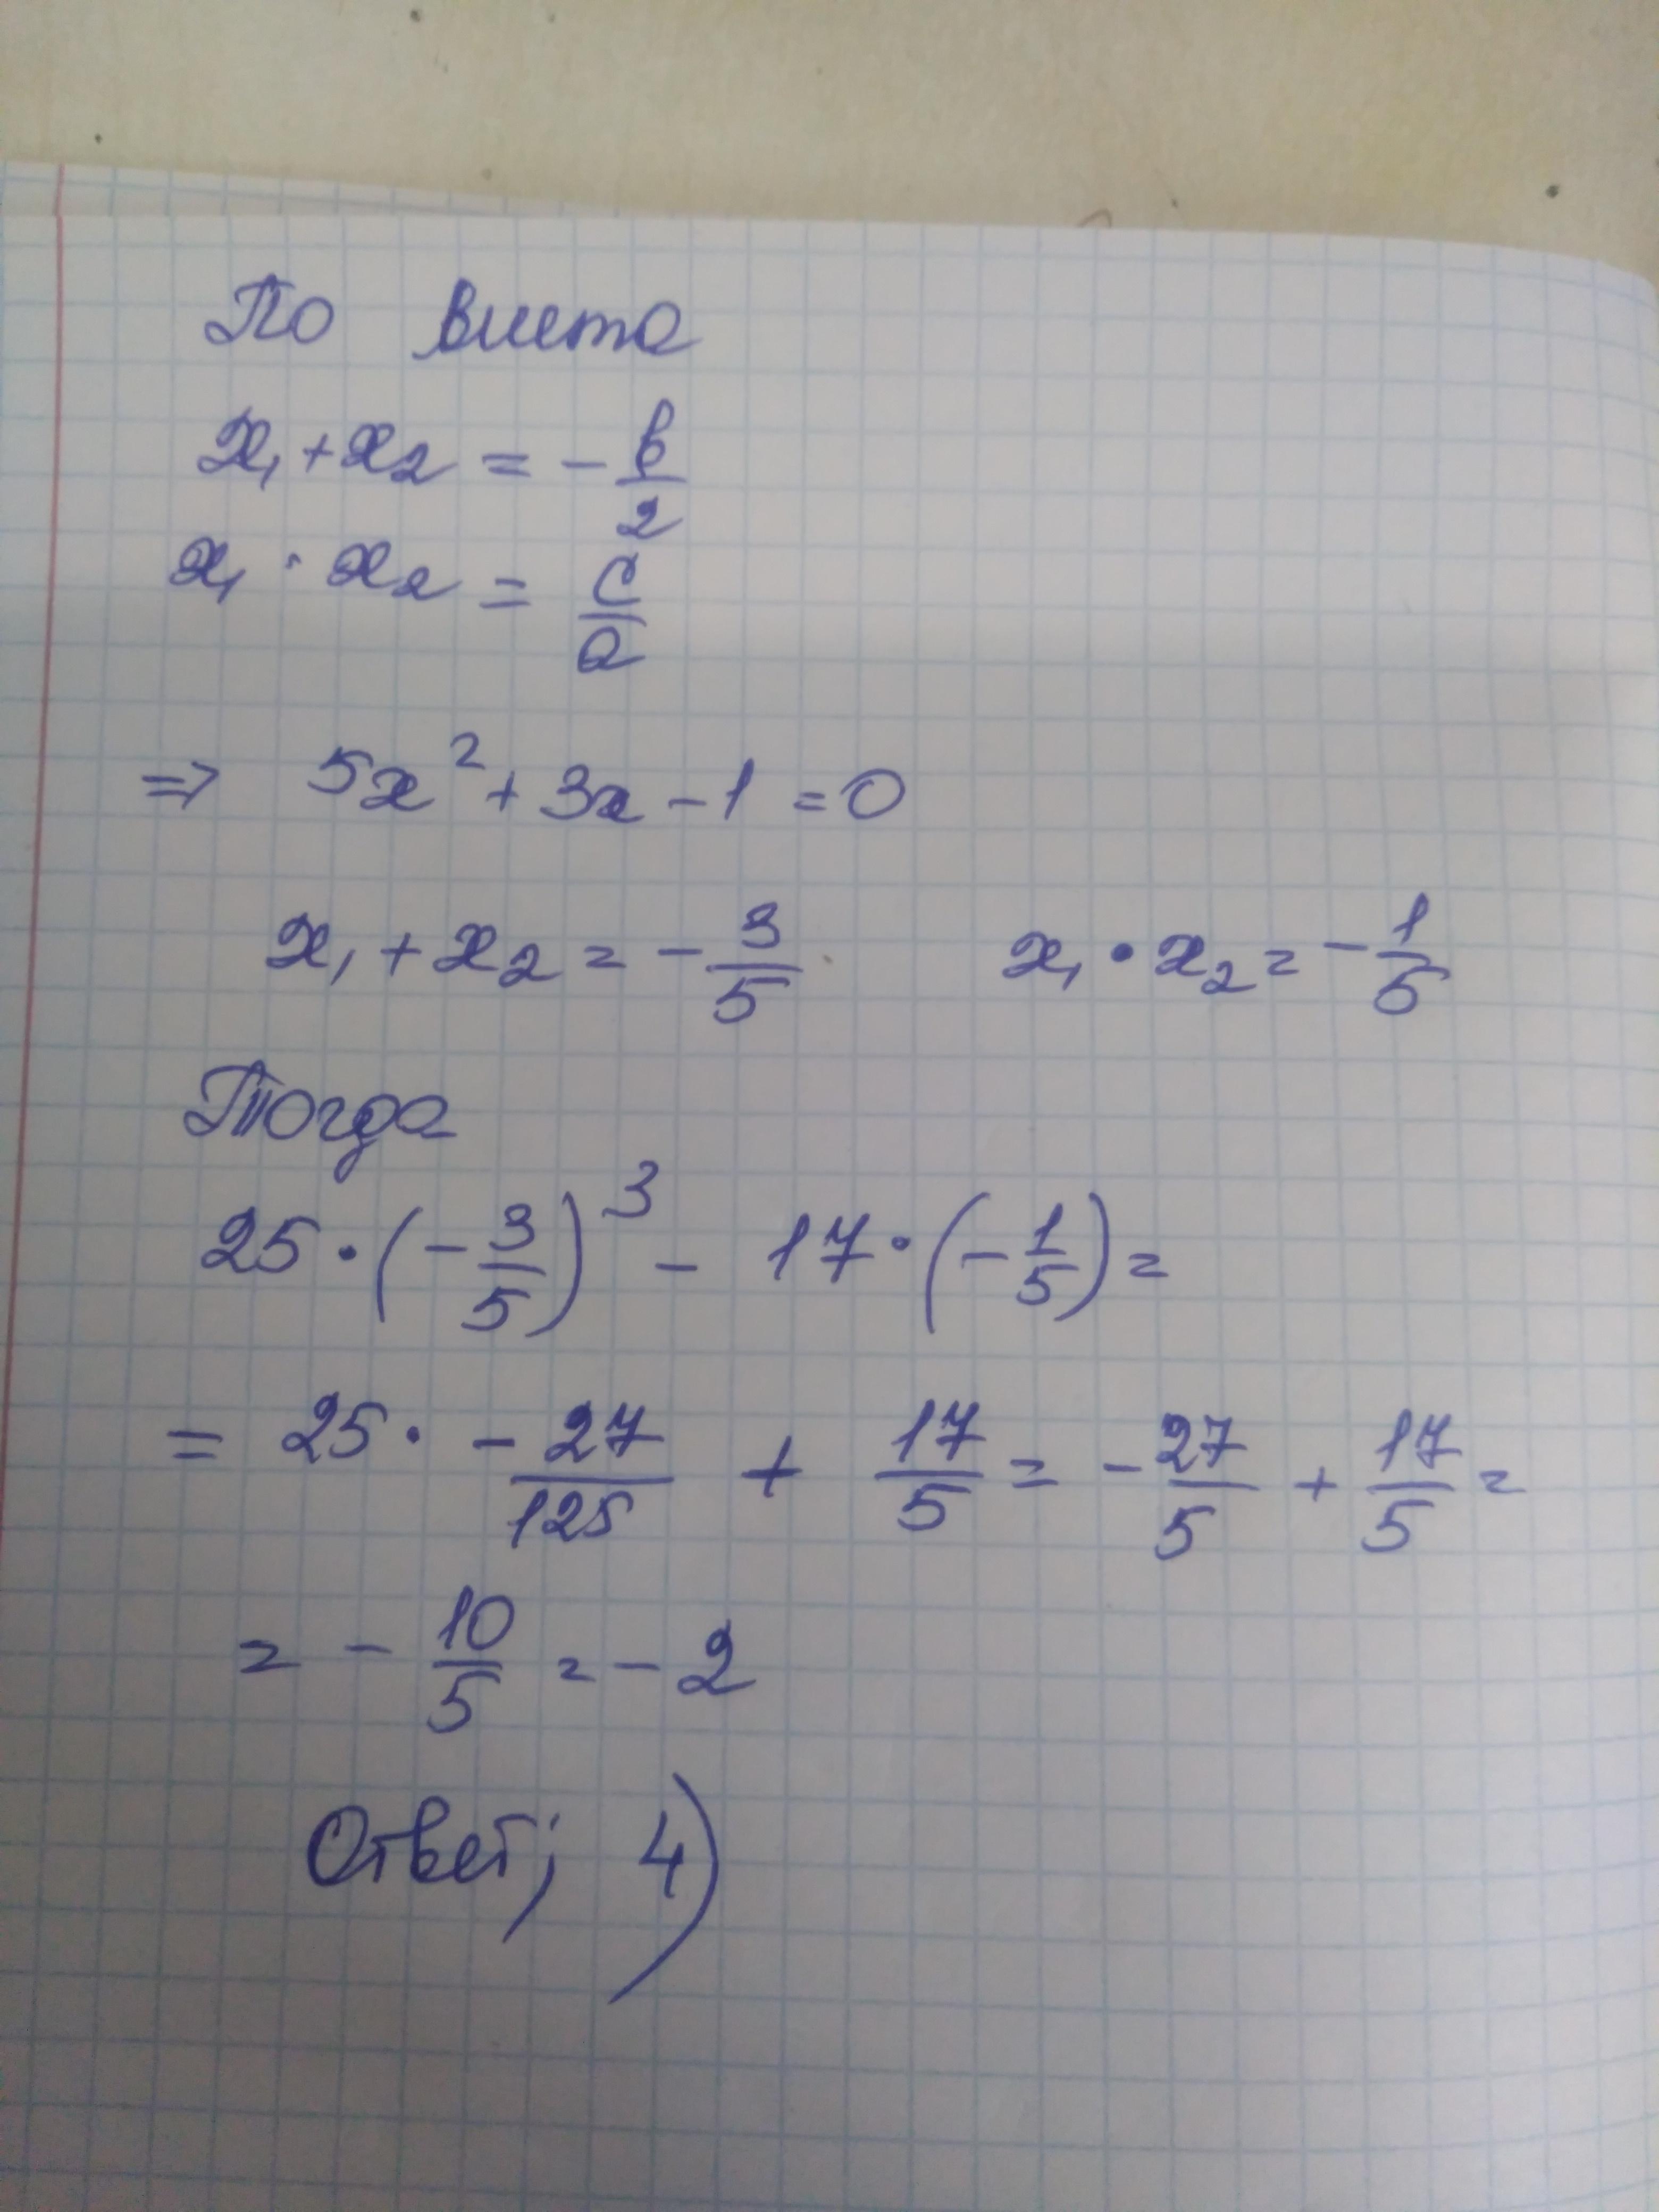 По виета
x₁ + x₂ = - b/2
x₁ · x₂ = c/a
=> 5x² + 3x - 1 = 0
x₁ + x₂ = - 3/5   x₁ · x₂ = - 1/5
Тогда
25 · (- 3/5)³ - 17 · (- 1/5) =
= 25 · - 27/125 + 17/5 = - 27/5 + 17/5 =
= - 10/5 = - 2
Ответ; 4)